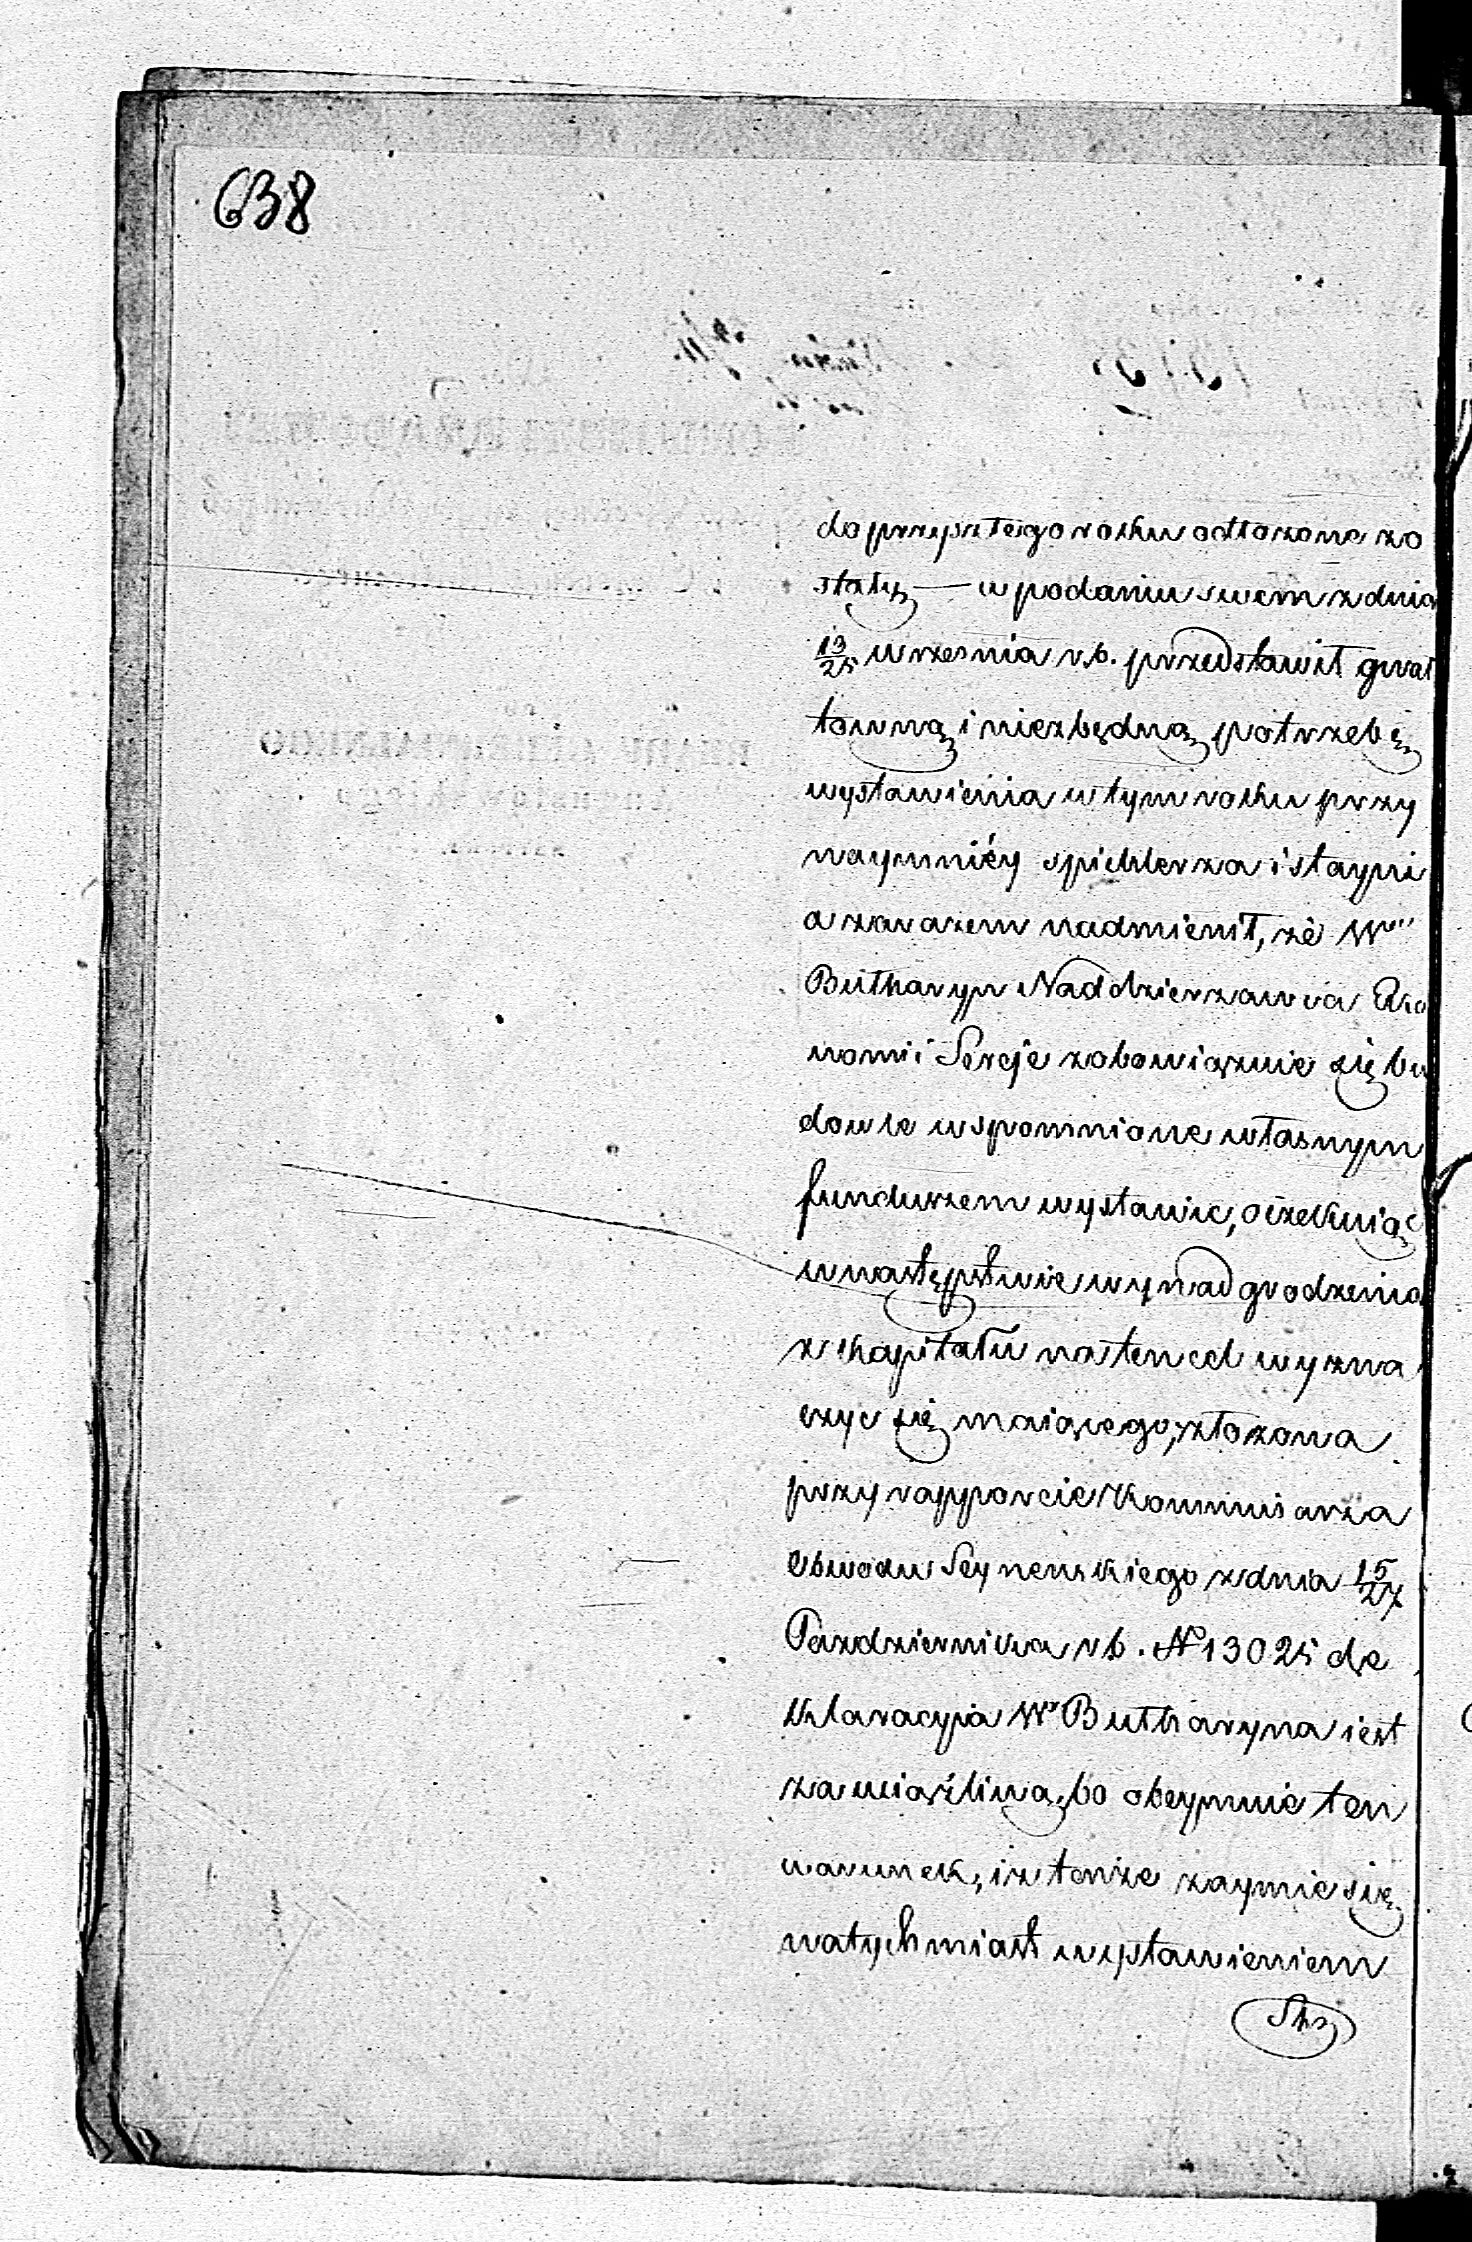 638
do przyszłego roku odłożone zo
stały — w podaniu swem z dnia
13/25 Wrzesnia r.b. przedstawił gwał
towną i niezbędną potrzebę
wystawienia w tym roku przy
naymniéy spichlerza i stayni
a zarazem nadmienił, że Wny
Butharyn Naddzierzawca Eko
nomii Sereje zobowiązuie się bu
dowle wspomnione własnym
funduszem wystawic, oczekuiąc
w następstwie wynadgrodzenia
z kapitału na ten cel wyzna
czyc się maiącego, złożona
przy rapporcie Kommisarza
Obwodu Seynenskiego z dnia 15/27
Pazdziernika r.b. N 13025 de
klaracyia Wo Butharyna iest
zawiązliwą, bo obeymuie ten
warunek, iz tenże zaymie się
natychmiast wystawieniem